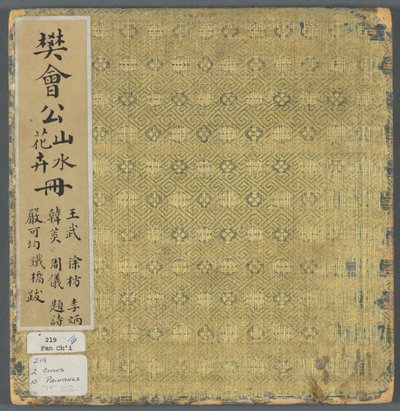 樊會公
山水
花卉
冊
王武 徐枋 李炳
韓菼 周儀 題詩
嚴可均 鐵橋 跋
219
Fan Ch'i
219
2 Covers
10 Paintings